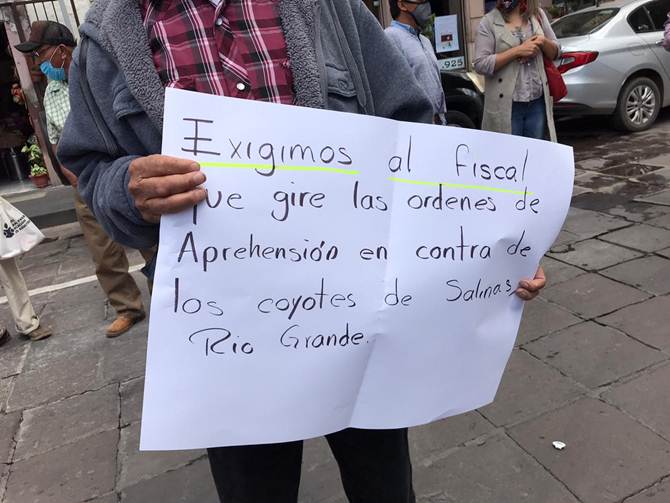 Exigimos al fiscal
que gire las ordenes de
Aprehensión en contra de
los coyotes de Salinas,
Rio Grande.
.925